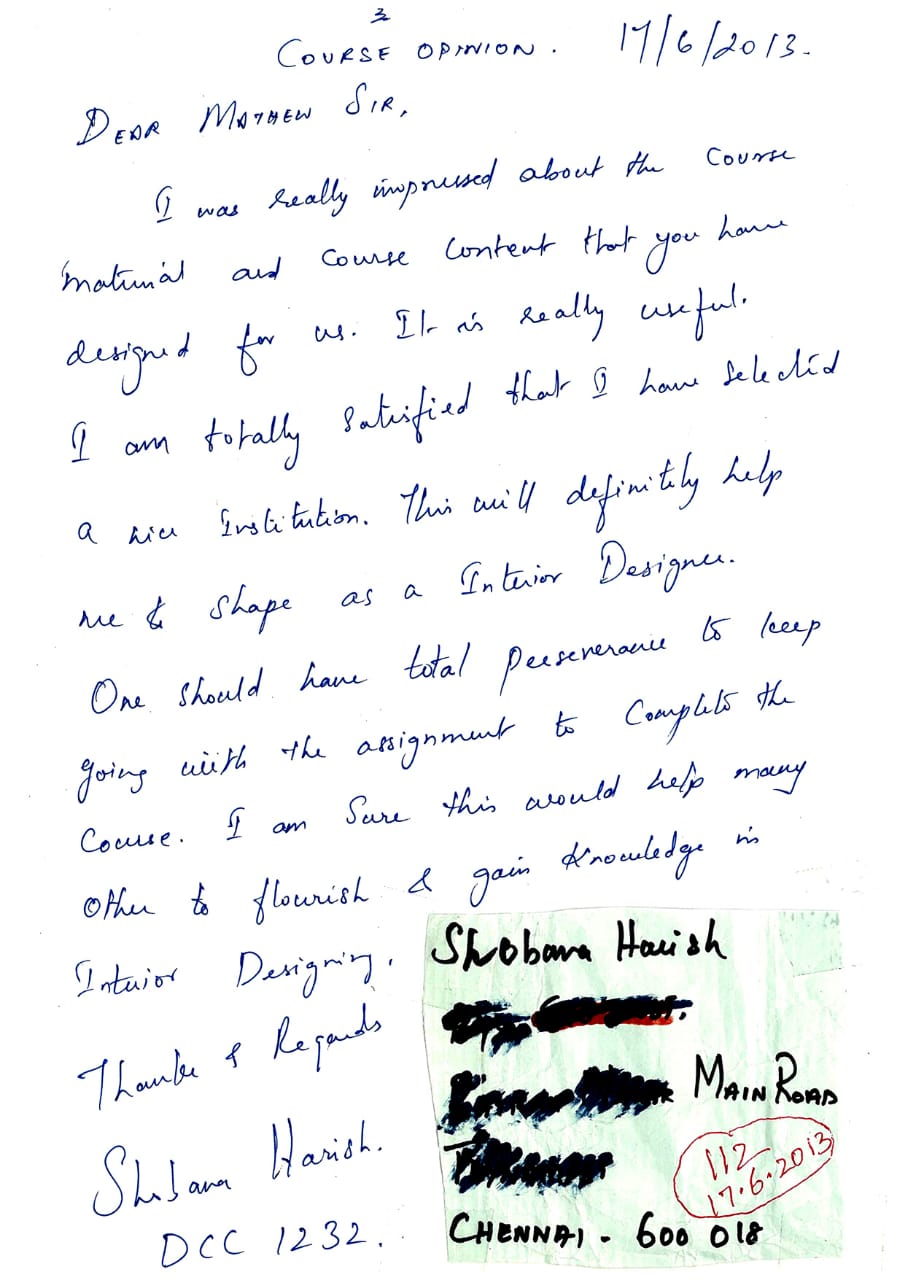 3
COURSE OPINION. 17/6/2013.
DEAR MATHEW SIR,
I was really impressed about the course
material and course content that you have
designed for us. It is really useful.
I am totally satisfied that I have selected
a nice Institution. This will definitely help
me & shape as a Interior Designer.
One should have total perseverance to keep
going with the assignment to complete the
course. I am sure this would help many
other to flourish & gain knowledge in
Interior Designing.
Thanks & Regards
Shobana Harish.
DCC 1232.
Shobana Harish
MAIN ROAD
112
17.6.2013
CHENNAI - 600 018